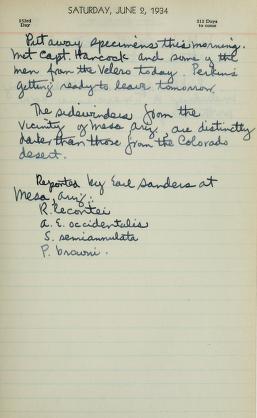 SATURDAY, JUNE 2, 1934
153rd Day
212 Days to come
Put away specimens this morning.
Met Capt. Hancock and some of the
men from the Velero today. Perkins
getting ready to leave tomorrow.
The sidewinders from the
vicinity of Mesa Ariz. are distinctly
darker than those from the Colorado
desert.
Reported by Earl Sanders at
Mesa, Ariz.
R. lecontei
A. E. occidentalis
S. semiannulata
P. browni.